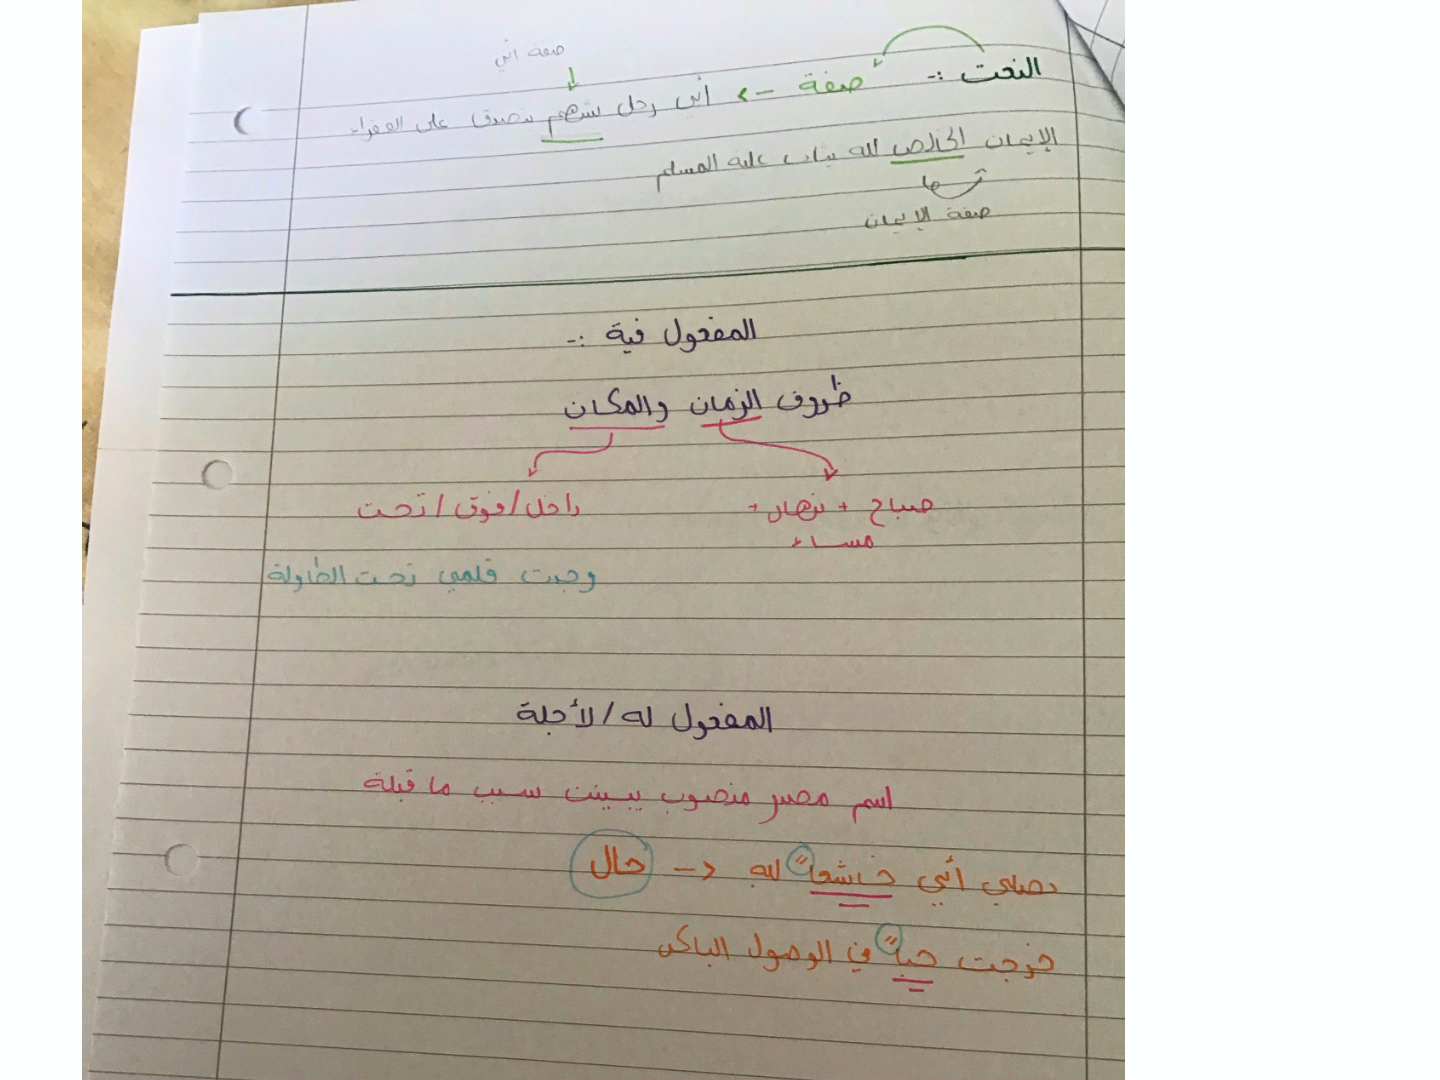 صفة أبي
النعت :- صفة -> أبي رجل شهم يتصدق على الفقراء
الإيمان الخالص لله يثاب عليه المسلم
صفة الإيمان
المفعول فية :-
ظروف الزمان والمكان
صباح + نهار +
مساء
داخل/فوق/تحت
وجدت قلمي تحت الطاولة
المفعول له/لأجلة
اسم مصدر منصوب يبين سبب ما قبلة
يصلي أبي خاشعاً لله -> حال
خرجت حباً في الوصول الباكر